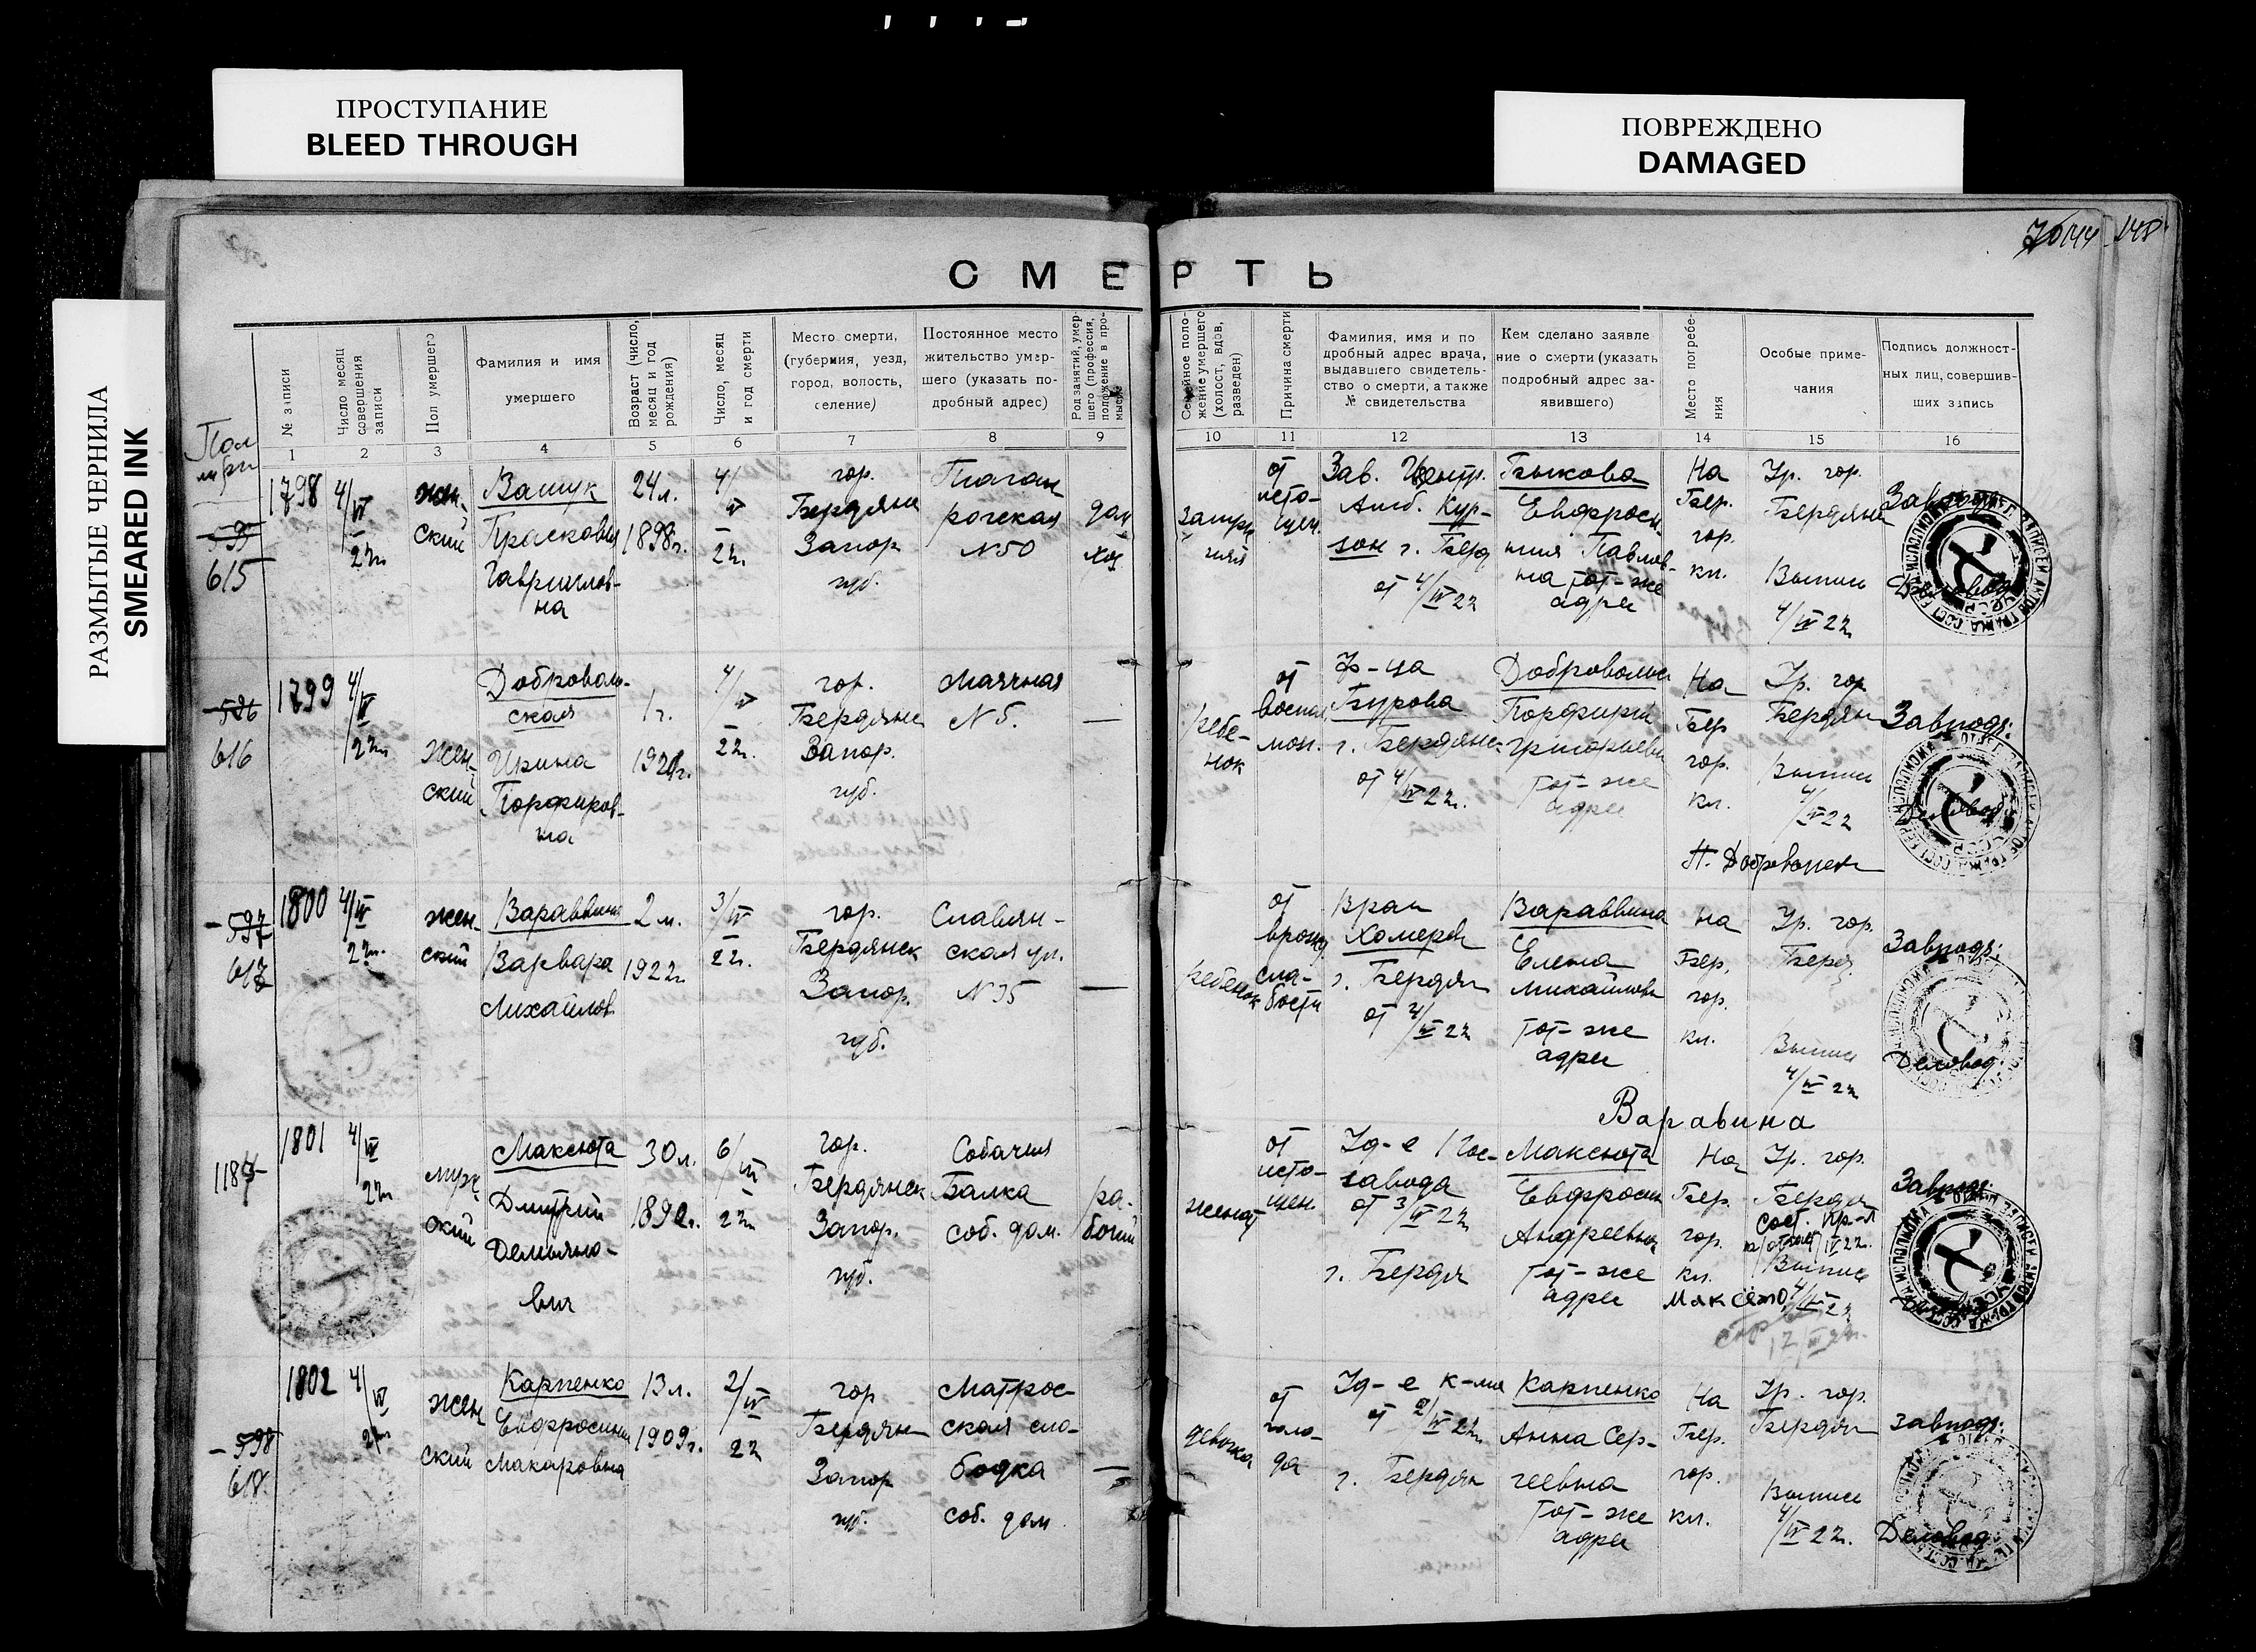 ПРОСТУПАНИЕ
BLEED THROUGH
ПОВРЕЖДЕНО
DAMAGED
РАЗМЫТЫЕ ЧЕРНИЛА
SMEARED INK
СМЕРТЬ
№ записи
Число месяц
совершения
записи
Пол умершего
Фамилия и имя
умершего
Возраст (число,
месяц и год
рождения)
Число, месяц
и год смерти
Место смерти,
(губерния, уезд,
город, волость,
селение)
Постоянное место
жительство умер-
шего (указать по-
дробный адрес)
Род занятий, умер-
шего (профессия,
положение в про-
мысле
Семейное поло-
жение умершего
(холост, вдов,
разведен)
Причина смерти
Фамилия, имя и по
дробный адрес врача,
выдавшего свидетель-
ство о смерти, а также
№ свидетельства
Кем сделано заявле
ние о смерти (указать
подробный адрес за-
явившего)
Место погребе-
ния
Особые приме-
чания
Подпись должност-
ных лиц, совершив-
ших запись
1 2 3 4 5 6 7 8 9 10 11 12 13 14 15 16
595
615
1798
4/IV
22г.
жен-
ский
Ващук
Прасковья
Гаврилов-
на
24л.
1898г.
4/IV
22г.
гор.
Бердянск
Запор
губ.
Таган
рогская
№ 50
дом
хоз
замуж
няя
от
исто-
щен.
Зав. Центр.
Амб. Кур-
зон г. Берд
от 4/IV 22
Быкова
Евфроси
ния Павлов-
на тот-же
адрес
На
Бер.
гор.
кл.
Гр. гор.
Бердянск
Выпись
4/IV 22г.
Завподз.
Деловод
596
616
1799
4/IV
22г.
жен-
ский
Доброволь-
ская
Ирина
Порфиров-
на
1 г.
1921г.
4/IV
22г.
гор.
Бердянс
Запор.
губ.
Маячная
№ 5.
—
ребе-
нок
от
воспал.
моз.
Бурова
г. Бердянс
от 4/IV 22г.
Добровольс
Порфирий
Григорьеви
тот-же
адрес
На
Бер
гор.
кл.
Гр. гор
Бердян
Выпись
4/IV 22
Завподз.
Деловод
П. Добровольск
597
617
1800
4/IV
22г.
жен-
ский
Вараввина
Варвара
Михайлов
2 м.
1922г
3/IV
22г.
гор.
Бердянск
Запор.
губ.
Славян-
ская ул.
№ 35
—
ребенок
от
врожд
сла-
бости
Врач
г. Бердян
от 4/IV 22г
Вараввина
Елена
Михайловн
тот-же
адрес
На
Бер.
гор.
кл.
Гр. гор.
Берд
Выпись
4/IV 22г
Завподз.
Деловод.
Варавина
1187
1801
4/IV
22г
муж
ский
Максюта
Дмитрий
Демьяно-
вич
30л.
1892г.
6/III
22г
гор.
Бердянск
Запор.
губ.
Собачия
Балка
соб. дом.
ра-
бочий
женат
от
исто-
щен.
Уд-е 1 Гос-
завода
от 3/IV 22г
г. Бердя
Максюта
Евфросин
Андреевна
тот-же
адрес
На
Бер.
гор.
кл.
Гр. гор.
Бердян
Выпись
4/IV 22
Завподз.
598
618
1802
4/IV
22г
жен
ский
Карпенко
Евфросиния
Макаровна
13л.
1909г.
2/IV
22
гор
Бердян
Запор
губ.
Матрос-
ская сло-
бодка
соб. дом
—
девочка
от
голо-
да
Уд-е к-ма
от 2/IV 22г.
г. Бердян
Карпенко
Анна Сер-
геевна
тот-же
адрес
На
Бер.
гор.
кл.
Гр. гор.
Бердян
Выпись
4/IV 22г.
Завподз.
Деловод